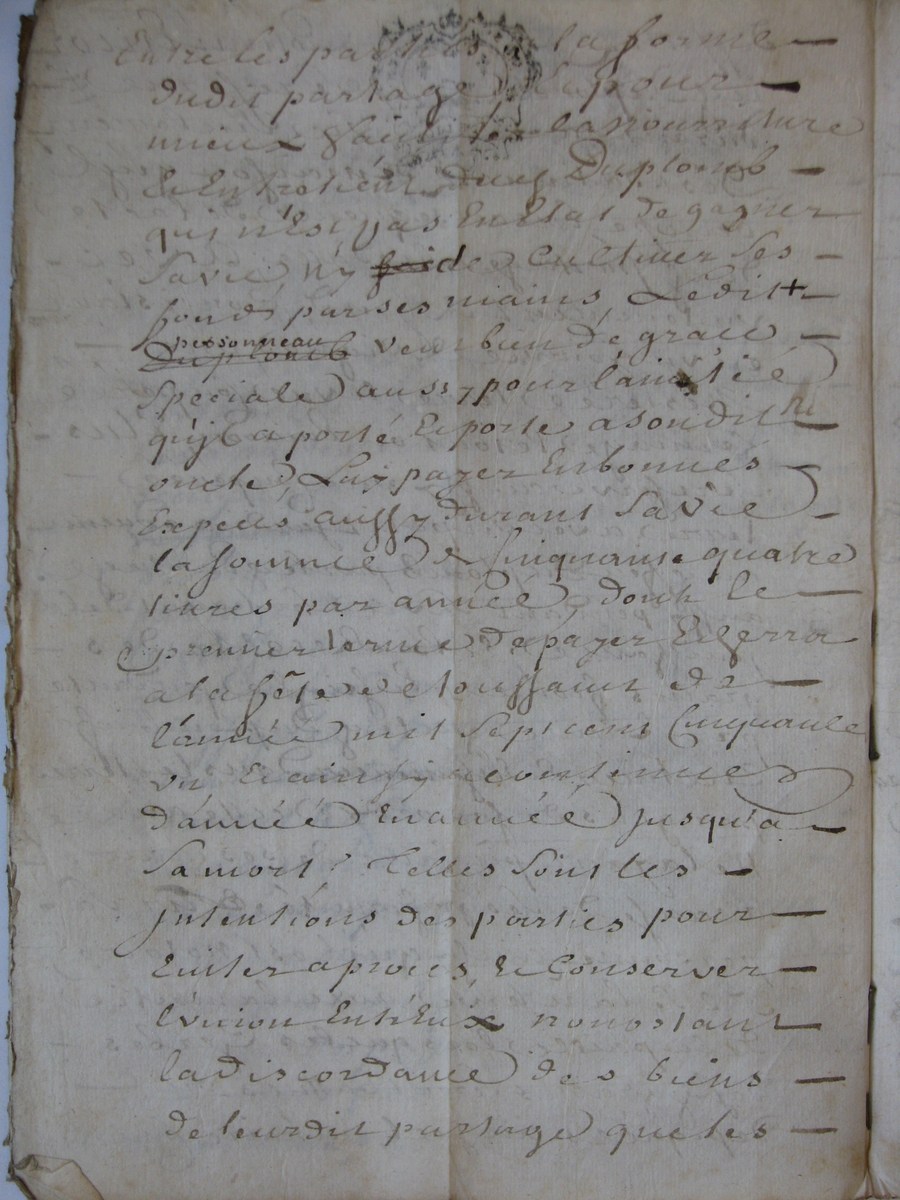 Entre les parties a la forme
dudit partage Et pour
mieux faciliter la nourriture
Et Entretient dud Duplomb
quj n'Est pas En Etat de gagner
sa vie, n'y de Cultiver ses
fonds par ses mains, Ledit +
personneau veut bien de grace
speciale aussy pour l'amitié
qu'jl a porté Et porte a sondit
oncle, Luy payer En bonnes
Especes aussy durant sa vie
la somme de Cinquante quatre
livres par année, dont le
premier terme de payer Echerra
a la fête de toussaint de
l'année mil sept cent Cinquante
un Et ainsy a continuer
d'année En année jusqu'a
sa mort. Telles sont les
jntentions des parties pour
Eviter a procès, Et Conserver
l'vnion Entr'Eux nonostant
la discordance des biens
de leurdit partage que les